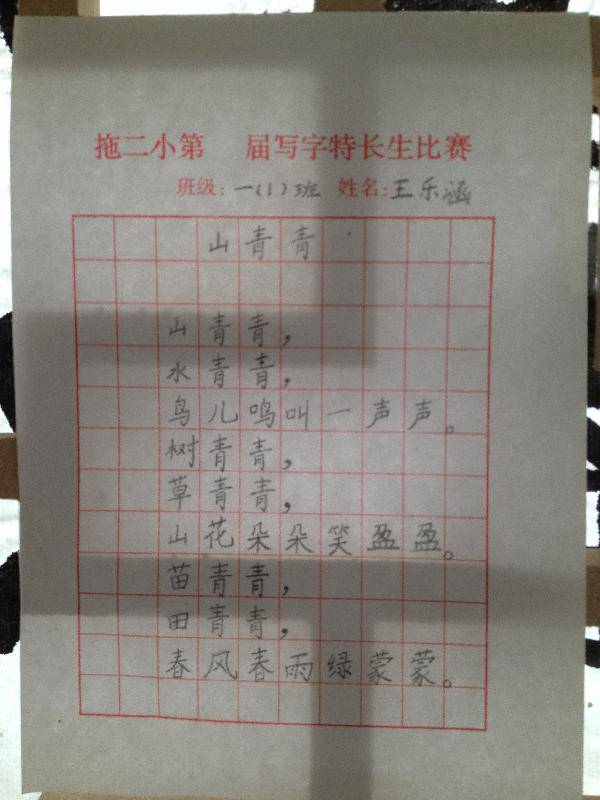 拖二小第 届写字特长生比赛
班级:一(1)班 姓名:王乐涵
山青青
山青青,
水青青,
鸟儿鸣叫一声声。
树青青,
草青青,
山花朵朵笑盈盈。
苗青青,
田青青,
春风春雨绿蒙蒙。